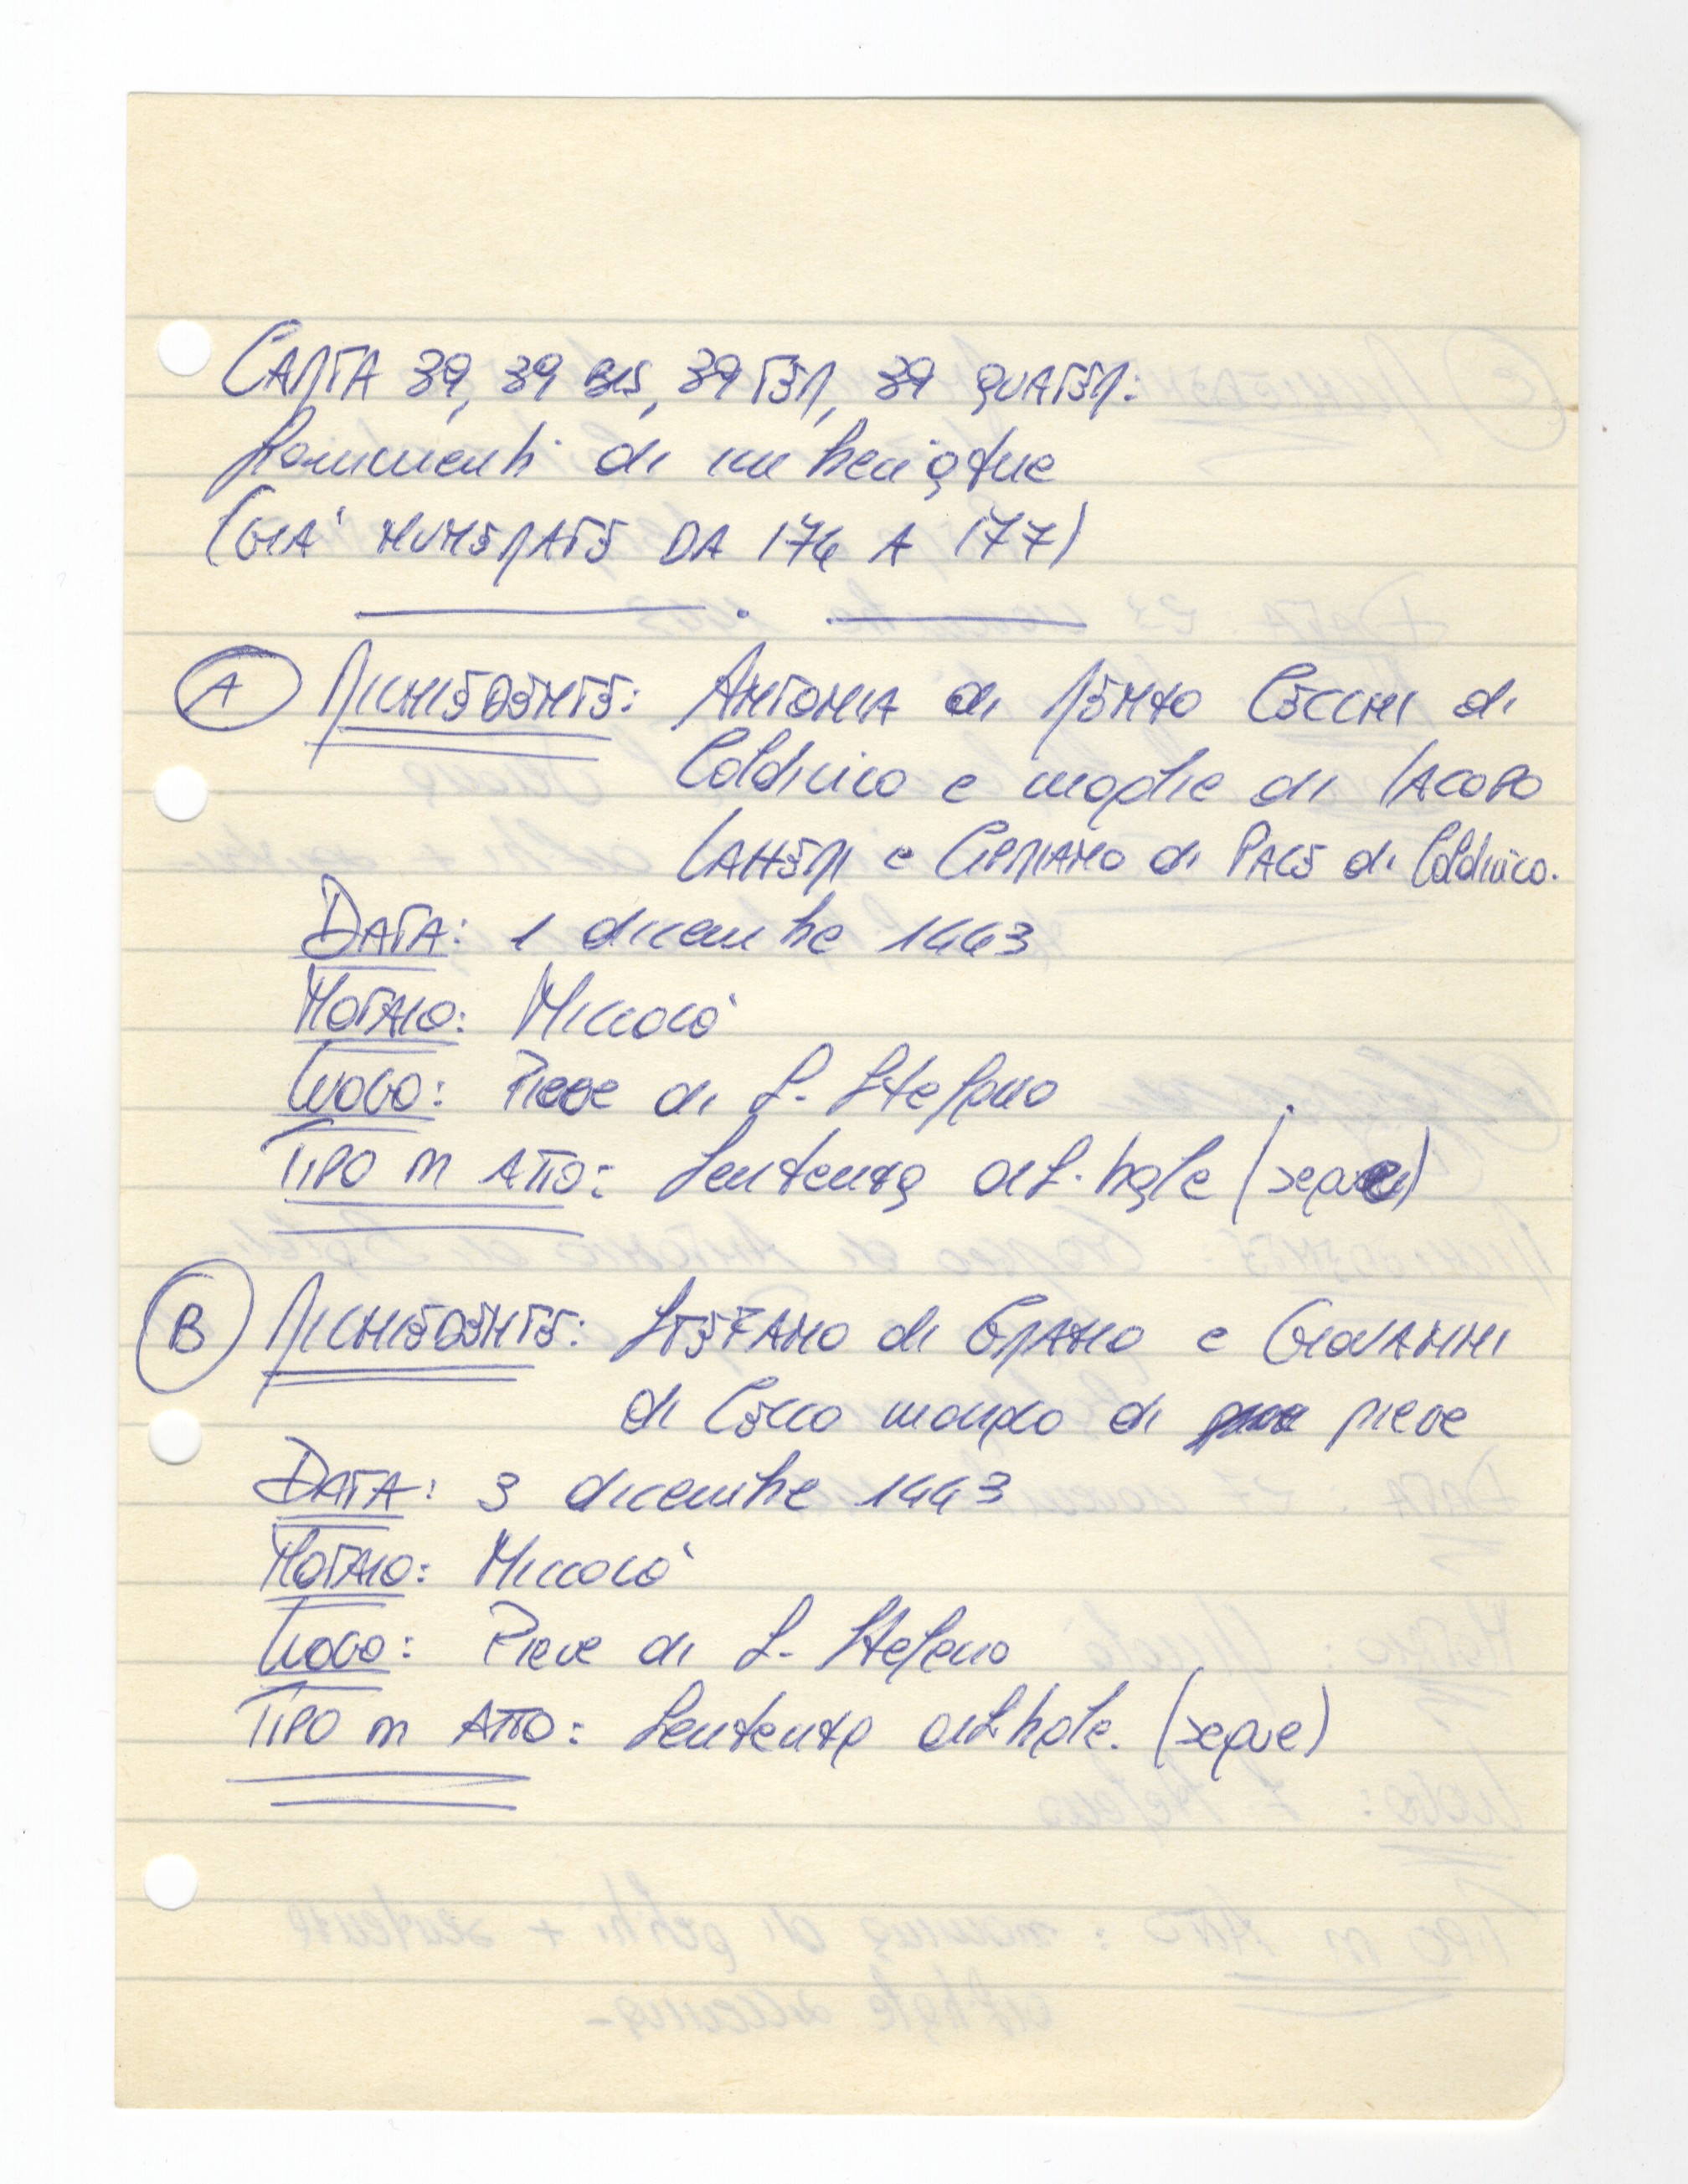 CARTA 39, 39 BIS, 39 TER, 39 QUATER:
frammenti di imbreviature
(GIA' NUMERATE DA 174 A 177)
A RICHIEDENTE: ANTONIA di RENZO CECCHI di
Coldirico e moglie di IACOPO
e CIPRIANO di PACE di Coldirico.
DATA: 1 dicembre 1443
NOTAIO: Niccolò
LUOGO: Pieve di S. Stefano
TIPO DI ATTO: Sentenza arbitrale (segue)
B RICHIEDENTE: STEFANO di e GIOVANNI
di CECCO di pieve
DATA: 3 dicembre 1443
NOTAIO: Niccolò
LUOGO: Pieve di S. Stefano
TIPO DI ATTO: Sentenza arbitrale. (segue)